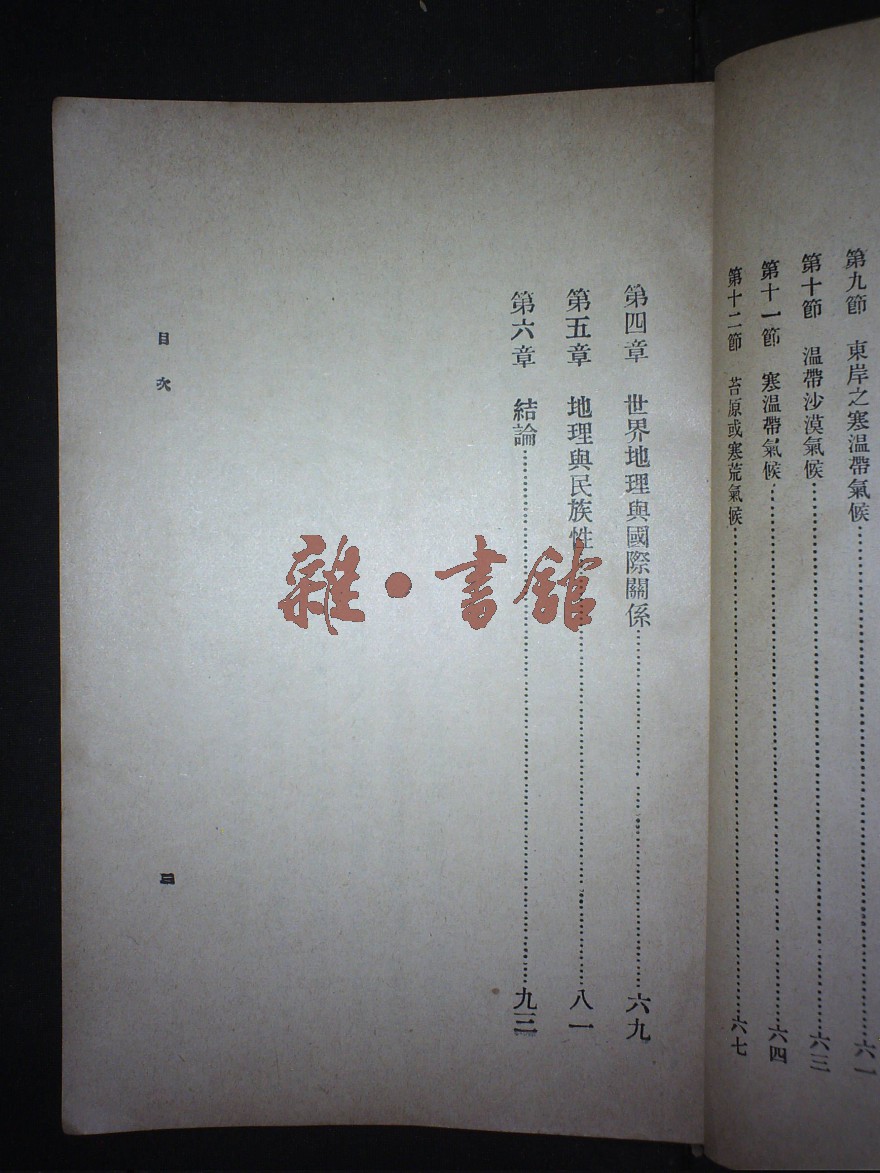 第九節 東岸之寒温帶氣候……六一
第十節 温帶沙漠氣候……六三
第十一節 寒温帶氣候……六四
第十二節 苔原或寒荒氣候……六七
第四章 世界地理與國際關係……六九
第五章 地理與民族性……八一
第六章 結論……九三
目次
三
雜·書館